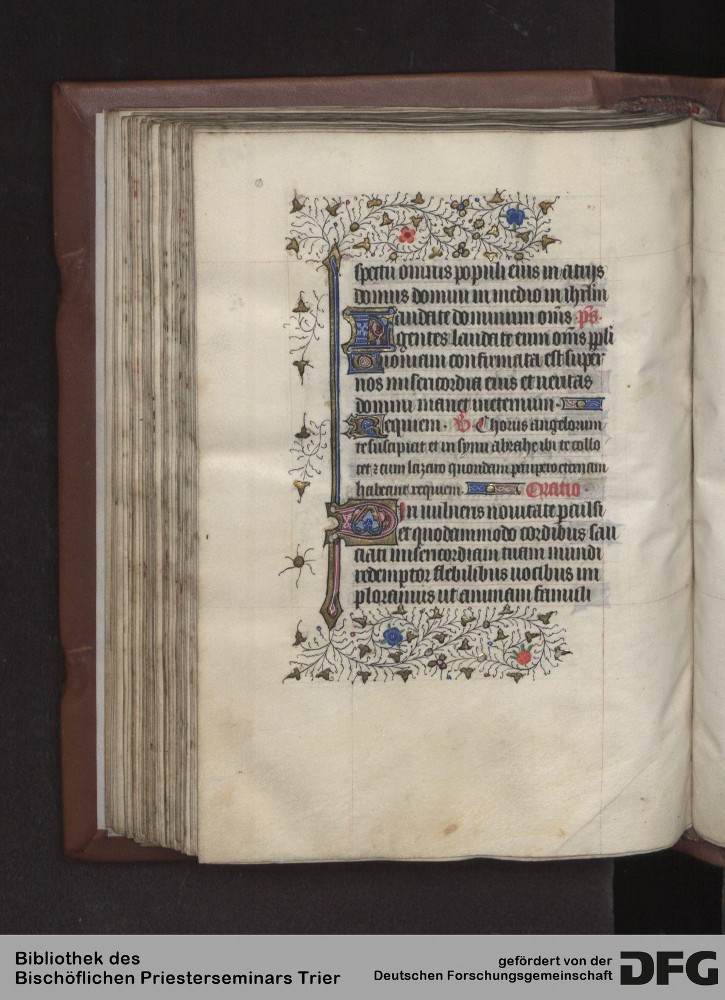 spectu omnis populi eius in atrijs
domus domini in medio tui ihrlm
Laudate dominum om̄s ps.
gentes laudate eum om̄s ppli
Quoniam confirmata est super
nos misericordia eius et ueritas
domini manet ineternum.
Requiem. Chorus angelorum
te suscipiat et in synu abrahe ibi te collo
cet ⁊ cum lazaro quondam paupere eternam
habeant requiem. Oratio.
in uulneris nouitate
et quodammodo cordibus sau
ciati misericordiam tuam mundi
redemptor flebilibus uocibus im
ploramus ut animam famuli
Bibliothek des
Bischöflichen Priesterseminars Trier
gefördert von der
Deutschen Forschungsgemeinschaft
DFG